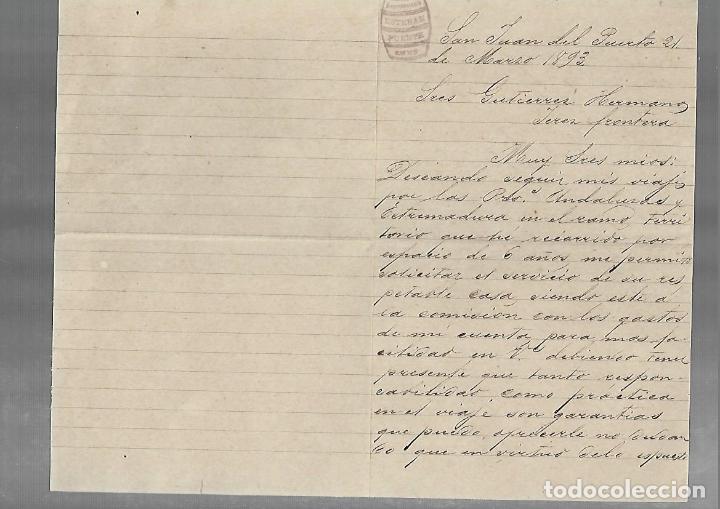 ESTEBAN
PUENTE
San Juan del Puerto 21
de Marzo 1893
Sres Gutierrez Hermanos
Jerez frontera
Muy Sres mios:
Deseando seguir mis viajes
por las Andalusas y
Estremadura en el ramo, terri
torio que hé recorrido por
espacio de 6 años me permito
solicitar el servicio de su res
petable casa siendo este á
la comisión con los gastos
de mi cuenta para mas fa
cilidad en V. debiendo tener
presente que tanto respon-
cabilidad, como práctica
en el viaje son garantias
que puedo ofrecerle no dudan
do que en virtud delo espuesto
todocoleccion.net